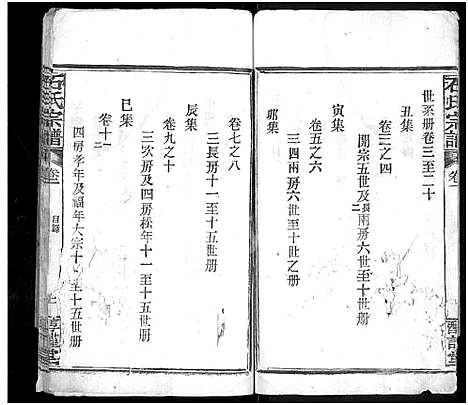 石氏宗譜
卷二
世系册卷三至二十
丑集
卷三之四
開宗五世及長兩房六世至十世册
寅集
卷五之六
三四兩房六世至十世之册
卯集
卷七之八
三長房十一至十五世册
辰集
卷九之十
三次房及四房松年十一至十五世册
巳集
卷十一
四房孝年及福年大宗十一至十五世册
石氏宗譜
卷二
目錄